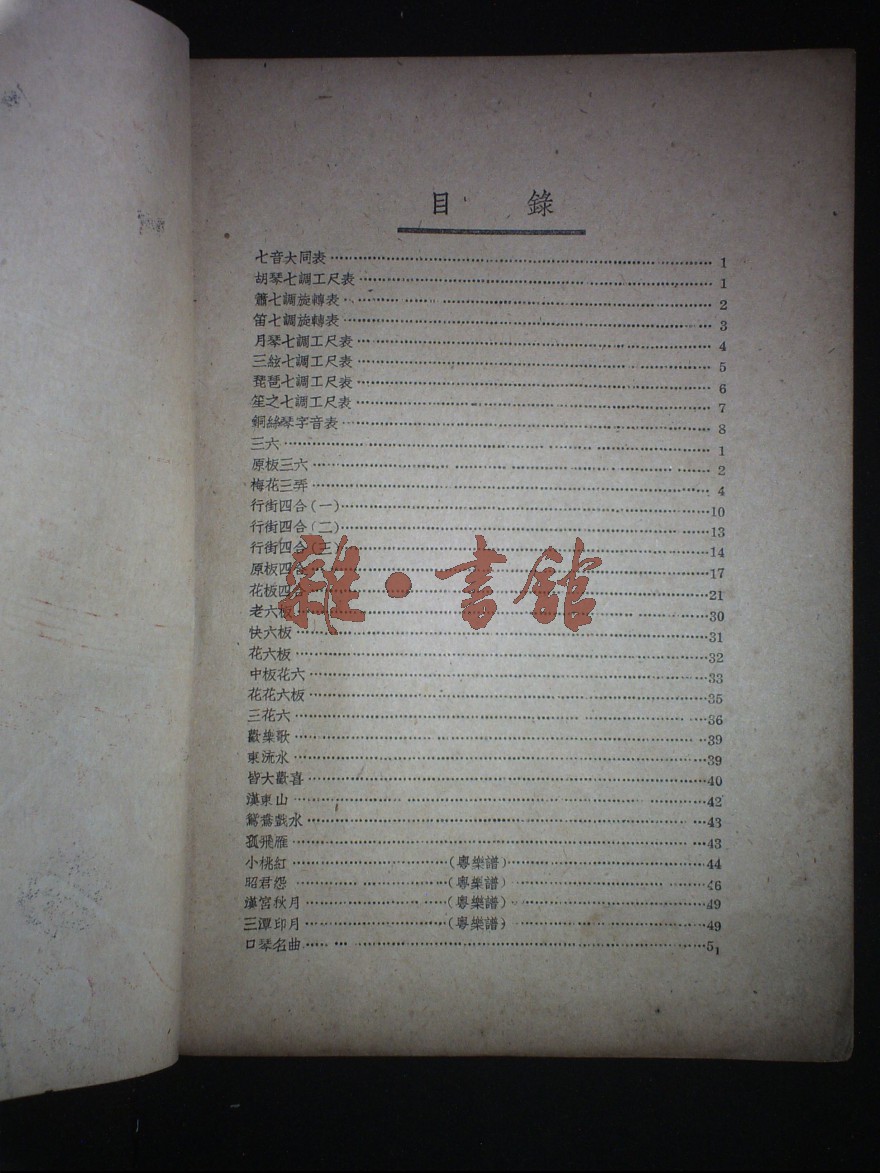 目錄
七音大同表 1
胡琴七調工尺表 1
簫七調旋轉表 2
笛七調旋轉表 3
月琴七調工尺表 4
三絃七調工尺表 5
琵琶七調工尺表 6
笙之七調工尺表 7
銅絲琴字音表 8
三六 1
原板三六 2
梅花三弄 4
行街四合(一) 10
行街四合(二) 13
行街四合(三) 14
原板四合 17
花板四合 21
老六板 30
快六板 31
花六板 32
中板花六 33
花花六板 35
三花六 36
歡樂歌 39
東流水 39
皆大歡喜 40
漢東山 42
鴛鴦戲水 43
孤飛雁 43
小桃紅 (粵樂譜) 44
昭君怨 (粵樂譜) 46
漢宮秋月 (粵樂譜) 49
三潭印月 (粵樂譜) 49
口琴名曲 51
雜·書館